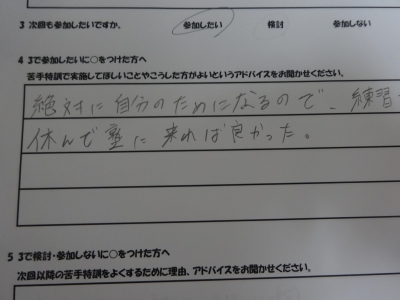 3 次回も参加したいですか。 参加したい 検討 参加しない
4 3で参加したいに○をつけた方へ
苦手特訓で実施してほしいことやこうした方がよいというアドバイスをお聞かせください。
絶対に自分のためになるので、練習
休んで塾に来れば良かった。
5 3で検討・参加しないに○をつけた方へ
次回以降の苦手特訓をよくするために理由、アドバイスをお聞かせください。